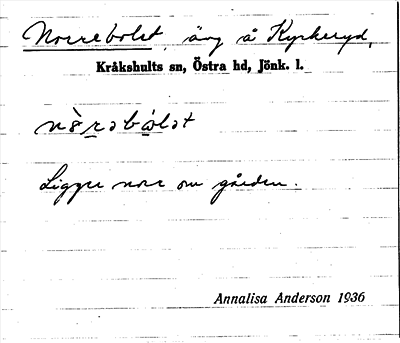 Norrebolet, äng å Kyrkeryd,
Kråkshults sn, Östra hd, Jönk. l.
nòrəbólət
Ligger norr om gården.
Annalisa Anderson 1936